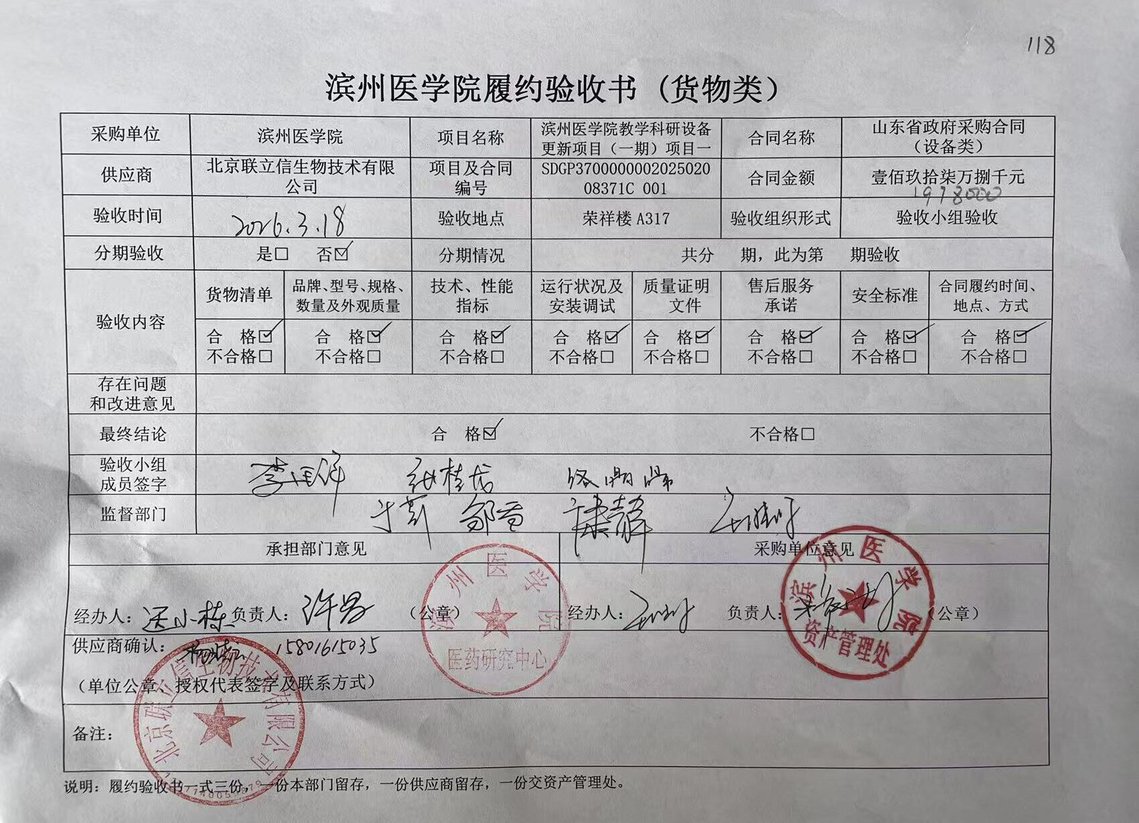 118
滨州医学院履约验收书（货物类）
采购单位 滨州医学院 项目名称 滨州医学院教学科研设备更新项目（一期）项目一 合同名称 山东省政府采购合同（设备类）
供应商 北京联立信生物技术有限公司 项目及合同编号 SDGP370000000202502008371C 001 合同金额 壹佰玖拾柒万捌千元
1978000
验收时间 2026.3.18 验收地点 荣祥楼 A317 验收组织形式 验收小组验收
分期验收 是□ 否☑ 分期情况 共分 期，此为第 期验收
验收内容 货物清单 品牌、型号、规格、数量及外观质量 技术、性能指标 运行状况及安装调试 质量证明文件 售后服务承诺 安全标准 合同履约时间、地点、方式
合 格☑ 合 格☑ 合 格☑ 合 格☑ 合 格☑ 合 格☑ 合 格☑ 合 格☑
不合格□ 不合格□ 不合格□ 不合格□ 不合格□ 不合格□ 不合格□ 不合格□
存在问题和改进意见
最终结论 合 格☑ 不合格□
验收小组成员签字
监督部门
承担部门意见 采购单位意见
经办人： 负责人： （公章） 经办人： 负责人： （公章）
滨州医学院
医药研究中心
滨州医学院
资产管理处
供应商确认： 15801615035
（单位公章、授权代表签字及联系方式）
北京联立信生物技术有限公司
备注：
说明：履约验收书一式三份，一份本部门留存，一份供应商留存，一份交资产管理处。